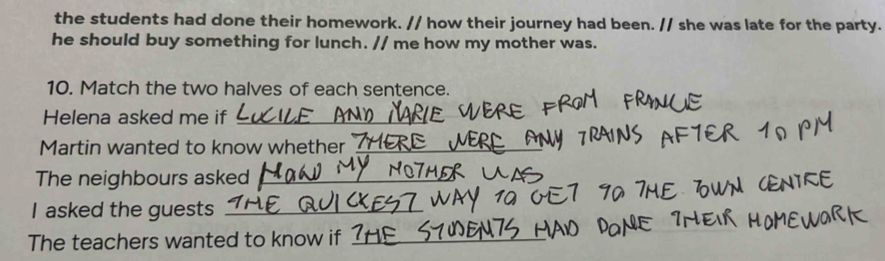 the students had done their homework. // how their journey had been. // she was late for the party.
he should buy something for lunch. // me how my mother was.
10. Match the two halves of each sentence.
Helena asked me if LUCILE AND MARIE WERE FROM FRANCE
Martin wanted to know whether THERE WERE ANY TRAINS AFTER 10 PM
The neighbours asked HOW MY MOTHER WAS
I asked the guests THE QUICKEST WAY TO GET TO THE TOWN CENTRE
The teachers wanted to know if THE STUDENTS HAD DONE THEIR HOMEWORK